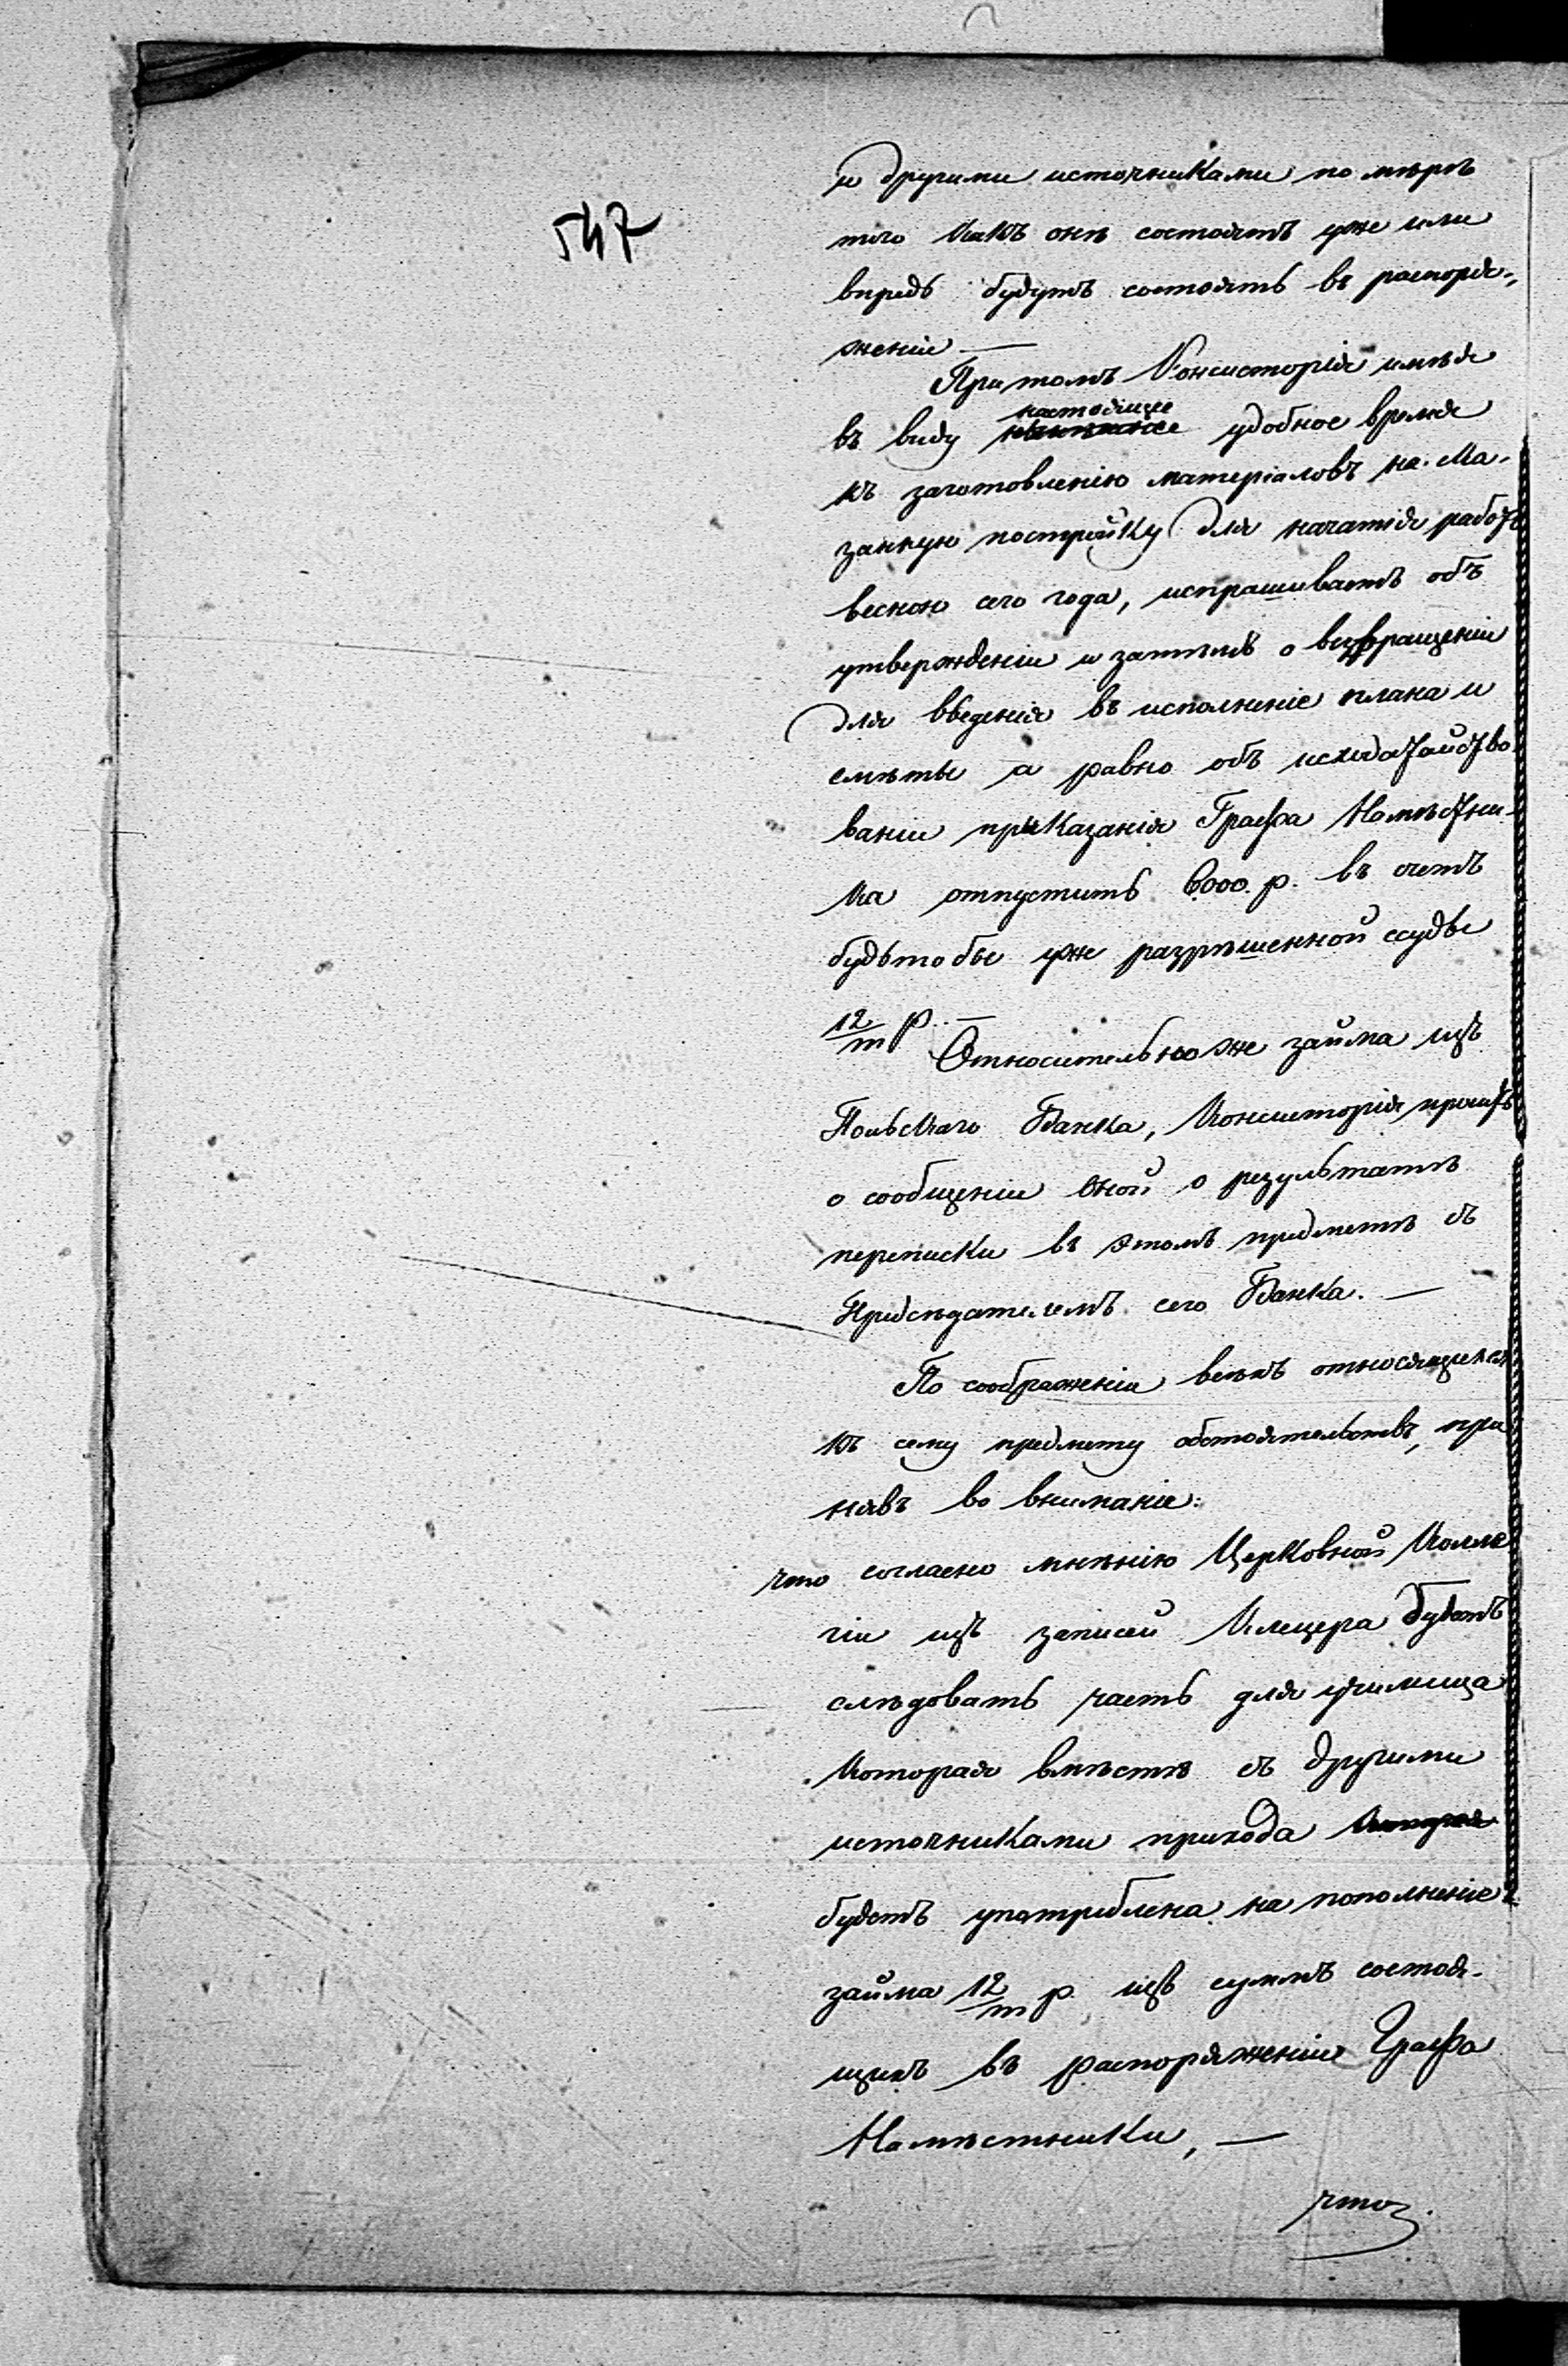 547
и другими источниками по мѣрѣ
того какъ онѣ состоятъ уже или
впредь будутъ состоять въ распоря-
женіи —
Притомъ Консисторія имѣя
въ виду настоящее удобное время
къ заготовленію матеріаловъ на ска-
занную постройку для начатія работъ
весною сего года, испрашиваетъ объ
утвержденіи и затѣмъ о возвращеніи
для введенія въ исполненіе плана и
смѣты а равно объ исходатайство-
ваніи приказанія Графа Намѣстни-
ка отпустить 6000. р. въ счетъ
будьто бы уже разрѣшенной ссуды
12/m р. —
Относительно же займа изъ
Польскаго Банка, Консисторія проситъ
о сообщеніи оной о результатѣ
переписки въ этомъ предметѣ съ
Предсѣдателемъ сего Банка. —
По соображеніи всѣхъ относящихся
къ сему предмету обстоятельствъ, при
нявъ во вниманіе:
что согласно мнѣнію Церковной Колле
гіи изъ записей будетъ
слѣдовать часть для училища
которая вмѣстѣ съ другими
источниками прихода
будетъ употреблена на пополненіе
займа 12/m р. изъ суммъ состоя-
щихъ въ распоряженіи Графа
Намѣстника, —
что